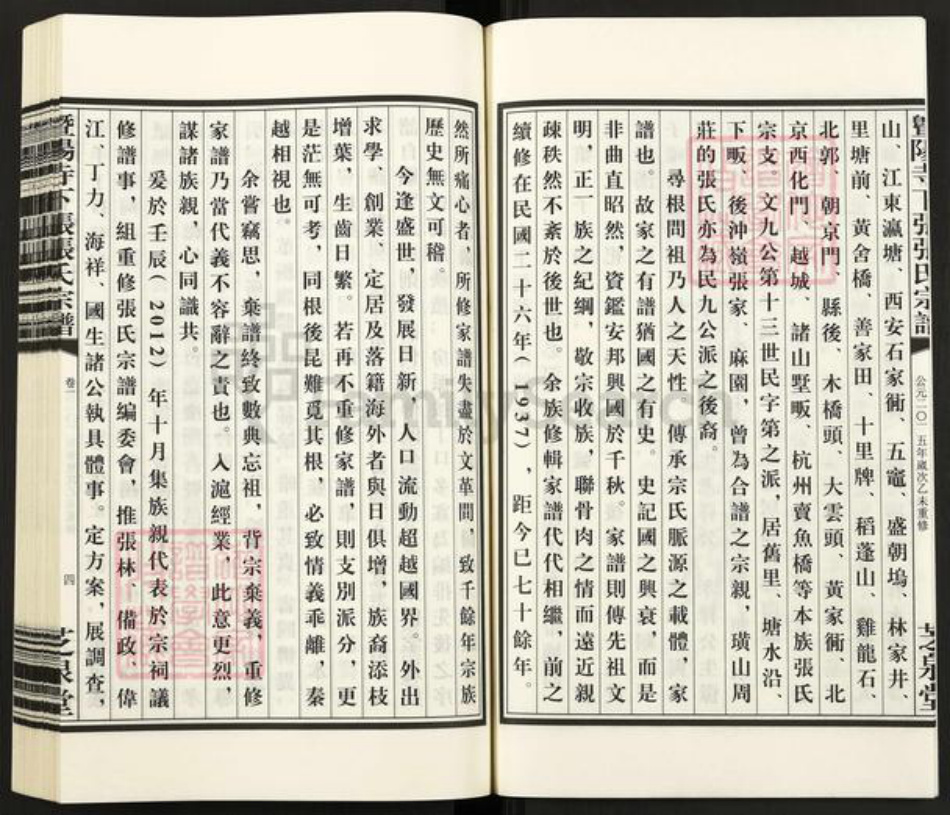 暨陽寺下張張氏宗譜
公元二〇一五年歲次乙未重修
芝泉堂
山、江東瀛塘、西安石家衕、五竈、盛朝塢、林家井、
里塘前、黃舍橋、善家田、十里牌、稻蓬山、雞龍石、
北郭、朝京門、縣後、木橋頭、大雲頭、黃家衕、北
京西化門、越城、諸山墅畈、杭州賣魚橋等本族張氏
宗支。文九公第十三世民字第之派，居舊里、塘水沿、
下畈、後沖嶺張家、麻園，曾為合譜之宗親，璜山周
莊的張氏亦為民九公派之後裔。
尋根問祖乃人之天性，傳承宗氏脈源之載體，家
譜也。故家之有譜猶國之有史。史記國之興衰，而是
非曲直昭然，資鑑安邦興國於千秋。家譜則傳先祖文
明，正一族之紀綱，敬宗收族，聯骨肉之情而遠近親
疎秩然不紊於後世也。余族修輯家譜代代相繼，前之
續修在民國二十六年（1937），距今已七十餘年。
然所痛心者，所修家譜失盡於文革間，致千餘年宗族
歷史無文可稽。
今逢盛世，發展日新，人口流動超越國界。外出
求學、創業、定居及落籍海外者與日俱增，族裔添枝
增葉，生齒日繁。若再不重修家譜，則支別派分，更
是茫無可考，同根後昆難覓其根，必致情義乖離，秦
越相視也。
余嘗竊思，棄譜終致數典忘祖，背宗棄義，重修
家譜乃當代義不容辭之責也。入滬經業，此意更烈，
謀諸族親，心同識共。
爰於壬辰（2012）年十月集族親代表於宗祠議
修譜事，組重修張氏宗譜編委會，推張林、備政、偉
江、丁力、海祥、國生諸公執具體事。定方案，展調查，
暨陽寺下張張氏宗譜
卷一
四
芝泉堂
FamilySearch